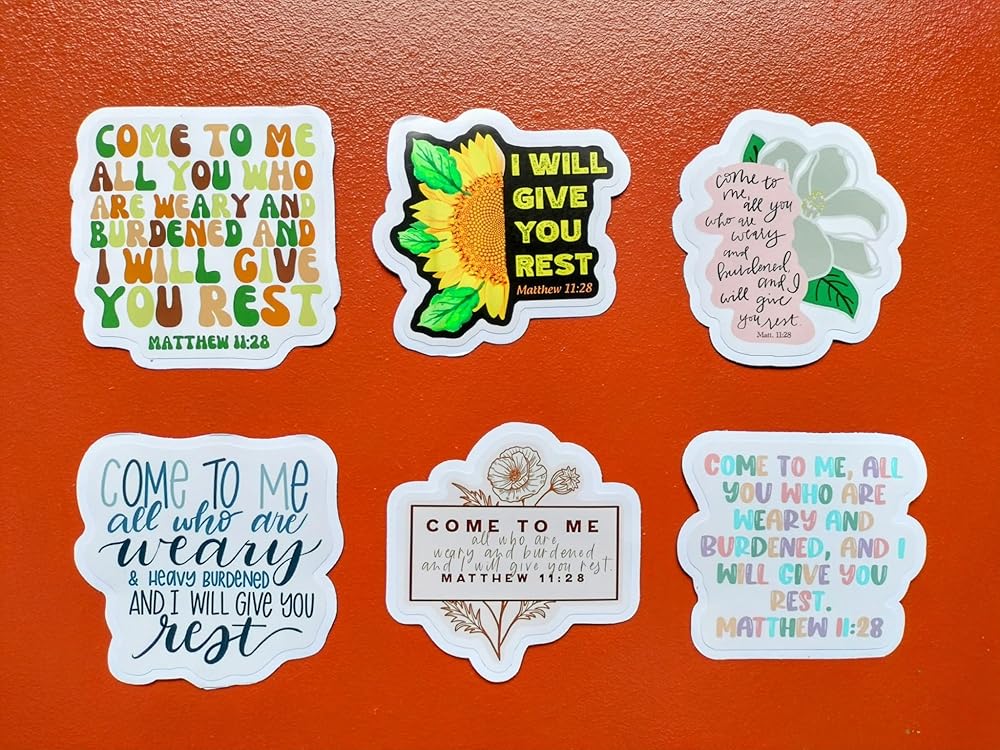 COME TO ME
ALL YOU WHO
ARE WEARY AND
BURDENED AND
I WILL GIVE
YOU REST
MATTHEW 11:28
I WILL
GIVE
YOU
REST
Matthew 11:28
come to
me,
all you
who are
weary
and
burdened,
and I
will give
you rest.
Matt. 11:28
COME TO ME
all who are
weary
& HEAVY BURDENED
AND I WILL GIVE YOU
rest
COME TO ME
all who are
weary and burdened
and I will give you rest.
MATTHEW 11:28
COME TO ME, ALL
YOU WHO ARE
WEARY AND
BURDENED, AND I
WILL GIVE YOU
REST.
MATTHEW 11:28